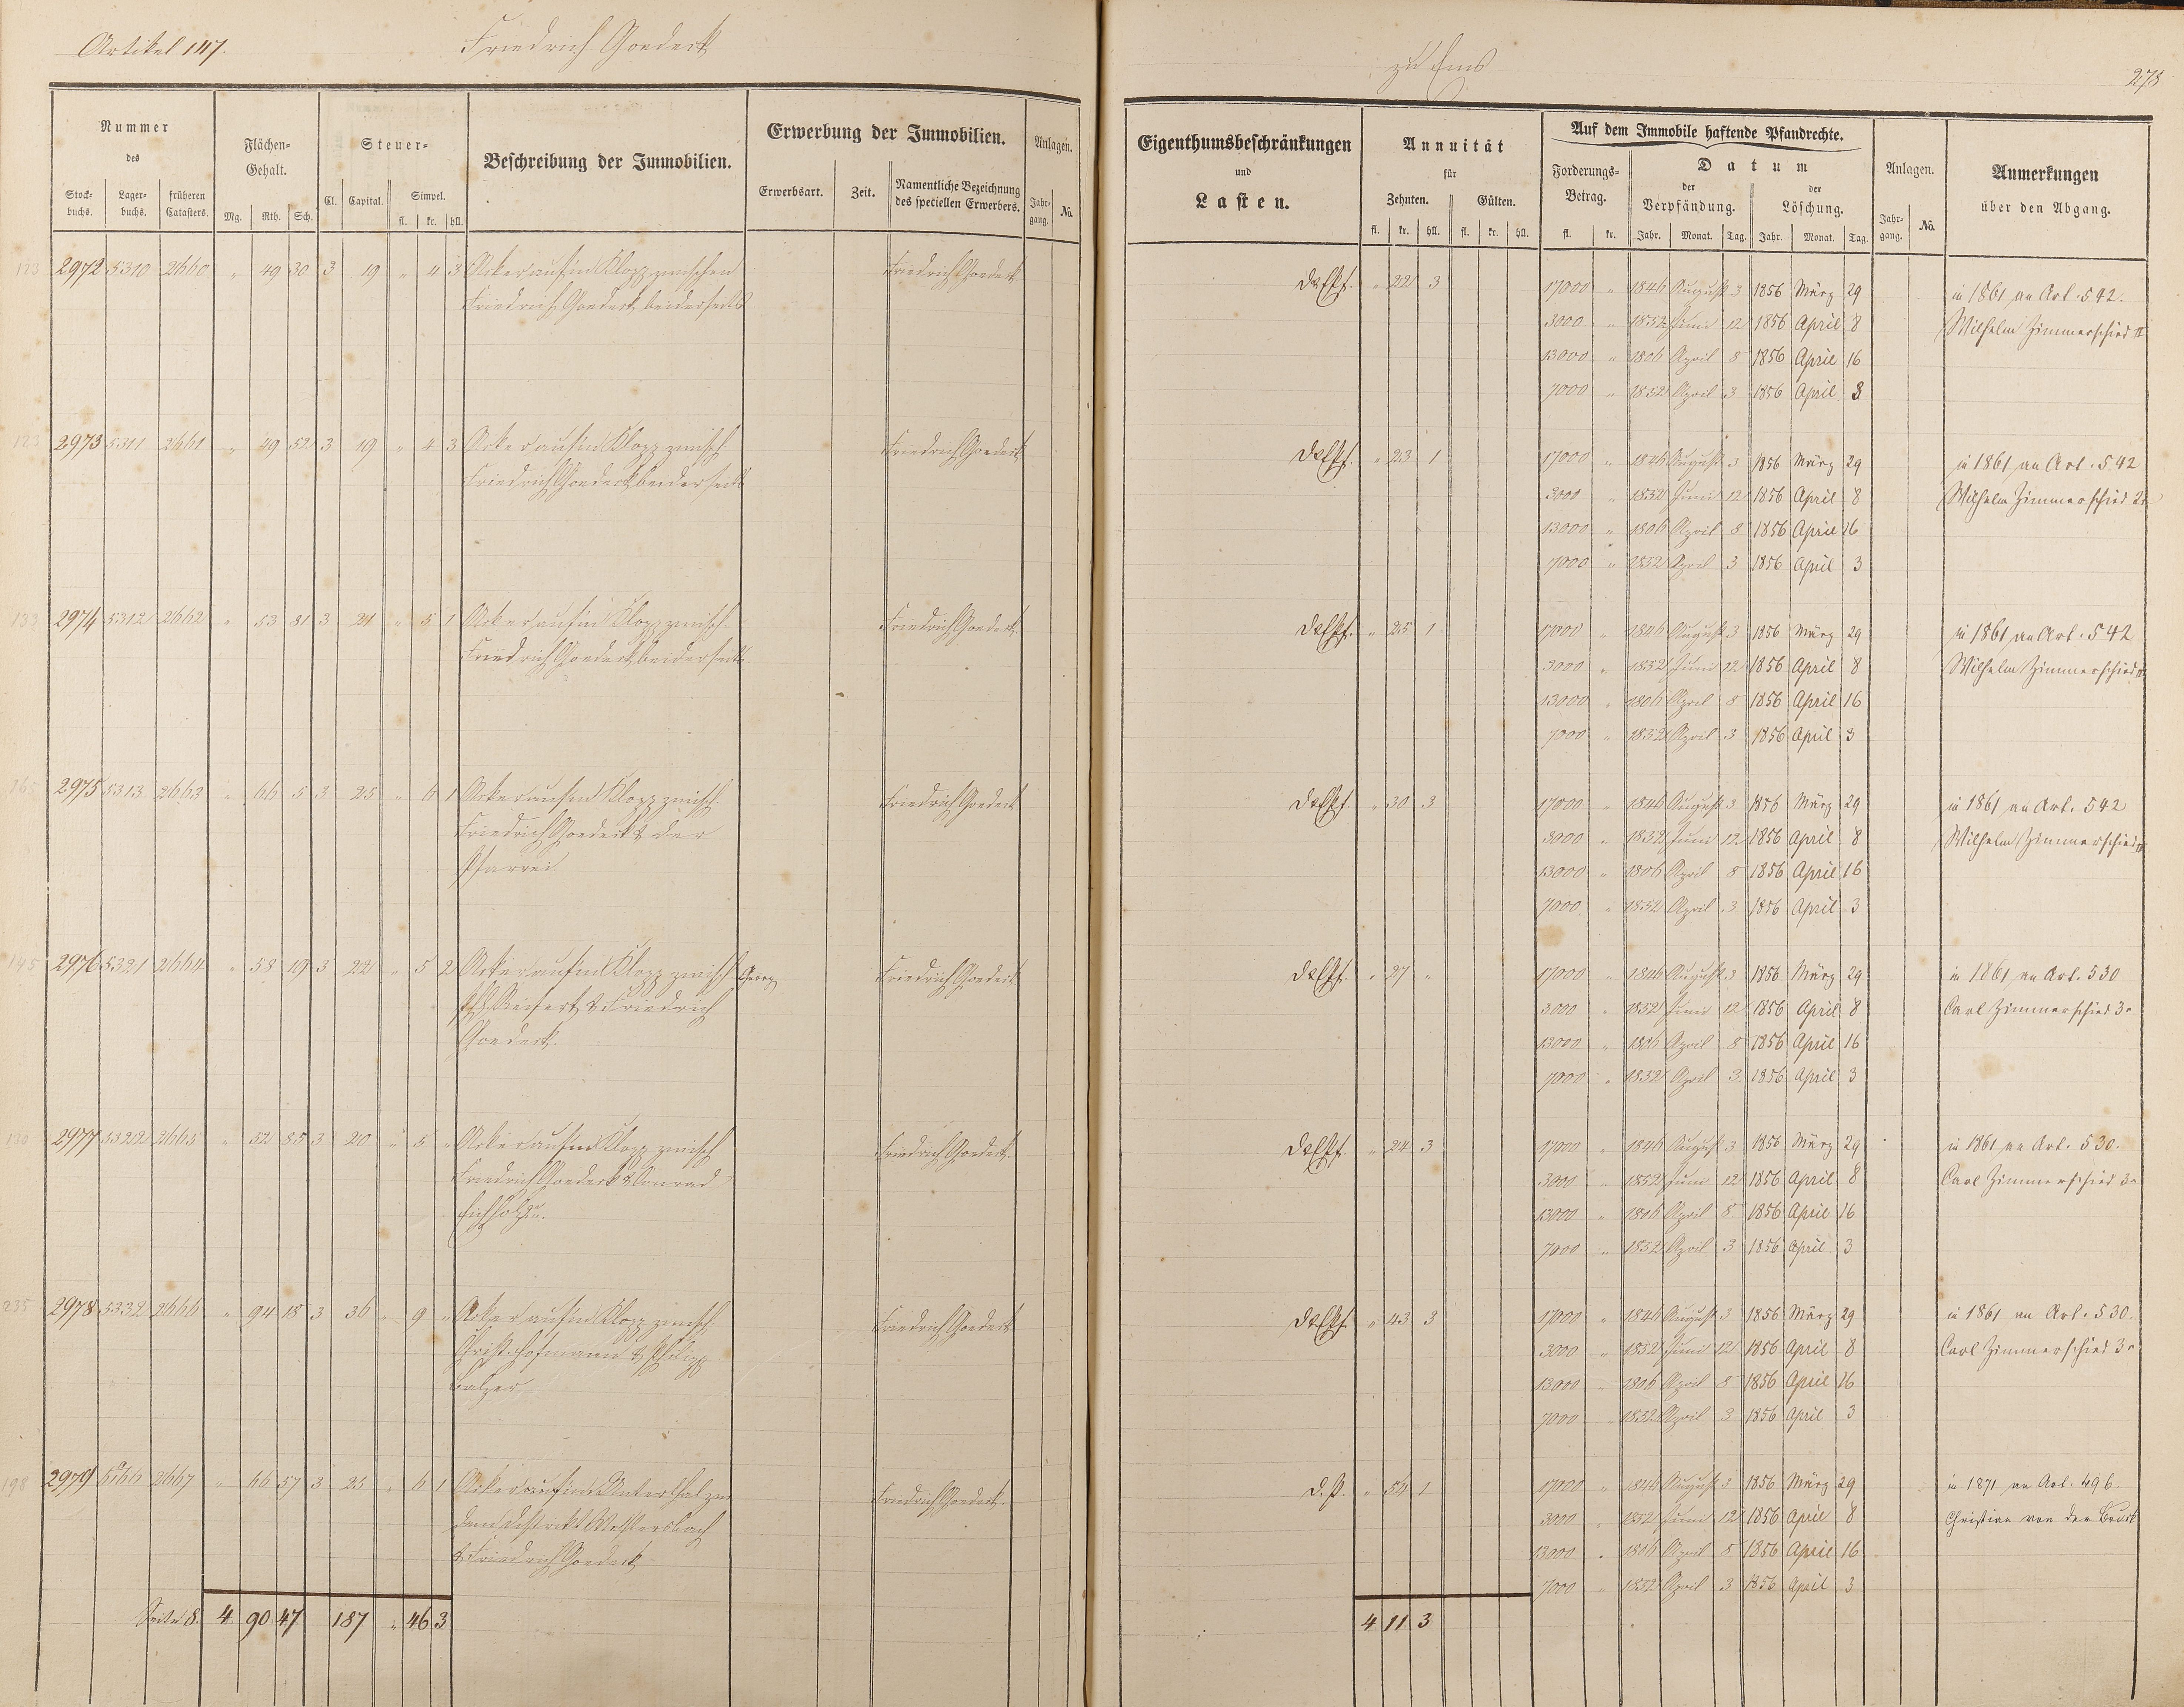 Artikel 147. Friedrich Goedeck zu Ems 278
Nummer des Stockbuchs. Lagerbuchs. früheren Catasters. Flächen-Gehalt. Mg. Rth. Sch. Steuer- Cl. Capital. Simpel. fl. kr. hll. Beschreibung der Immobilien. Erwerbung der Immobilien. Erwerbsart. Zeit. Namentliche Bezeichnung des speciellen Erwerbers. Anlagen. Jahrgang. No.
Eigenthumsbeschränkungen und Lasten. Annuität für Zehnten. fl. kr. hll. Gülten. fl. kr. hll. Auf dem Immobile haftende Pfandrechte. Forderungs-Betrag. fl. kr. Datum der Verpfändung. Jahr. Monat. Tag. der Löschung. Jahr. Monat. Tag. Anlagen. Jahrgang. No. Anmerkungen über den Abgang.
123 2972 5310 2660 " 49 30 3 19 " 4 3 Acker aufm Klopp zwischen Friedrich Goedeck " 22 3 17000 " 1846 August 3 1856 März 29 in 1861 an Art. 542.
Friedrich Goedeck beiderseits 3000 " 1852 Juni 12 1856 April 8 Wilhelm Zimmerschied II
13000 " 1806 April 8 1856 April 16
7000 " 1852 April 3 1856 April 3
123 2973 5311 2661 " 49 52 3 19 " 4 3 Acker aufm Klopp zwisch Friedrich Goedeck " 23 1 17000 " 1846 August 3 1856 März 29 in 1861 an Art. 542
Friedrich Goedeck beiderseits 3000 " 1852 Juni 12 1856 April 8 Wilhelm Zimmerschied 2r
13000 " 1806 April 8 1856 April 16
7000 " 1852 April 3 1856 April 3
133 2974 5312 2662 " 53 81 3 21 " 5 1 Acker aufm Klopp zwisch. Friedrich Goedeck " 25 1 17000 " 1846 August 3 1856 März 29 in 1861 an Art. 542
Friedrich Goedeck beiderseits 3000 " 1852 Juni 12 1856 April 8 Wilhelm Zimmerschied II
13000 " 1806 April 8 1856 April 16
7000 " 1852 April 3 1856 April 3
165 2975 5313 2663 " 66 5 3 25 " 6 1 Acker aufm Klopp zwisch. Friedrich Goedeck " 30 3 17000 " 1846 August 3 1856 März 29 in 1861 an Art. 542
Friedrich Goedeck & der 3000 " 1852 Juni 12 1856 April 8 Wilhelm Zimmerschied II
Pfarrei. 13000 " 1806 April 8 1856 April 16
7000 " 1852 April 3 1856 April 3
145 2976 5321 2664 " 58 19 3 22 " 5 2 Acker aufm Klopp zwisch Georg Friedrich Goedeck " 27 " 17000 " 1846 August 3 1856 März 29 in 1861 an Art. 530
& Friedrich 3000 " 1852 Juni 12 1856 April 8 Carl Zimmerschied 3r
Goedeck. 13000 " 1806 April 8 1856 April 16
7000 " 1852 April 3 1856 April 3
130 2977 5322 2665 " 52 85 3 20 " 5 " Acker aufm Klopp zwisch Friedrich Goedeck. " 24 3 17000 " 1846 August 3 1856 März 29 in 1861 an Art. 530.
Friedrich Goedeck & Conrad 3000 " 1852 Juni 12 1856 April 8 Carl Zimmerschied 3r
13000 " 1806 April 8 1856 April 16
7000 " 1852 April 3 1856 April 3
235 2978 5332 2666 " 94 18 3 36 " 9 " Acker aufm Klopp zwisch Friedrich Goedeck " 43 3 17000 " 1846 August 3 1856 März 29 in 1861 an Art. 530.
Christ. Hofmann & Philipp 3000 " 1852 Juni 12 1856 April 8 Carl Zimmerschied 3r
Balzer. 13000 " 1806 April 8 1856 April 16
7000 " 1852 April 3 1856 April 3
198 2979 2667 " 66 57 3 25 " 6 1 Acker Friedrich Goedeck. d. P. " 54 1 17000 " 1846 August 3 1856 März 29 in 1871 an Art. 496.
dem District 3000 " 1852 Juni 12 1856 April 8 Christian von der
& Friedrich Goedeck 13000 " 1806 April 8 1856 April 16
7000 " 1852 April 3 1856 April 3
Seite 8. 4 90 47 187 " 46 3 4 11 3